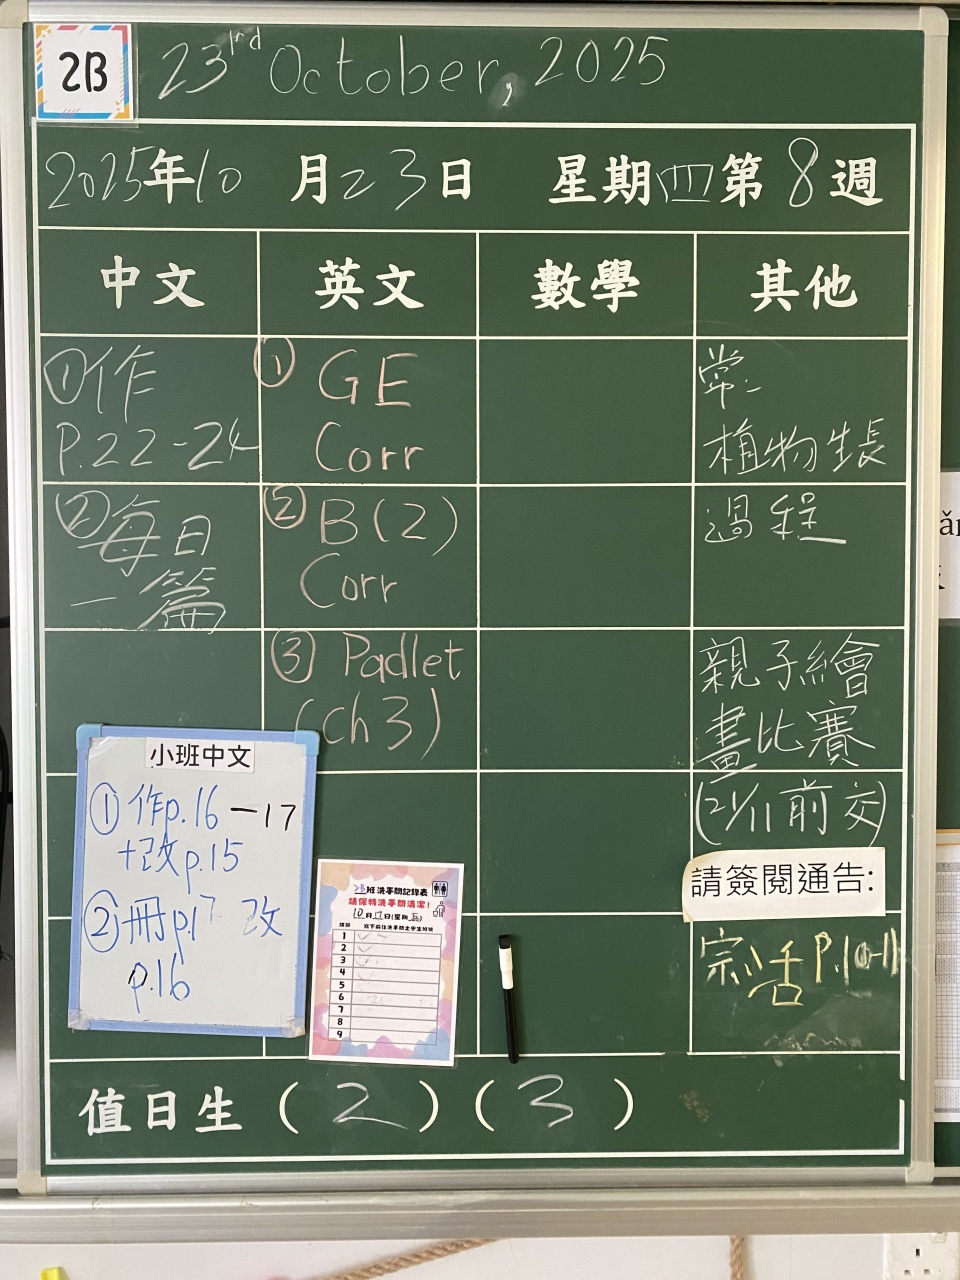 2B
23rd October, 2025
2025年10月23日 星期四第8週
中文
英文
數學
其他
①作
P.22-24
②每日
一篇
① GE
Corr
② B(2)
Corr
③ Padlet
(ch3)
常:
植物生長
過程
親子繪
畫比賽
(21/11前交)
請簽閱通告:
宗活P.10-11
小班中文
①作p.16-17
+改p.15
②冊p.17 改
p.16
2B班洗手間記錄表
請保持洗手間清潔!
10月17日(星期五)
1
2
3
4
5
6
7
8
9
值日生(2)(3)